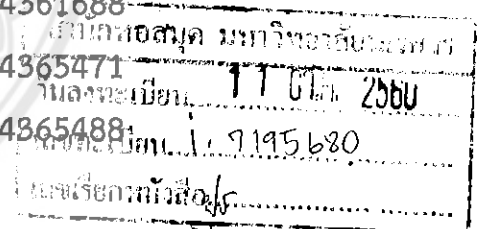 4361688
สำนักหอสมุด มหาวิทยาลัยนเรศวร
4365471
วันลงทะเบียน 11 ต.ค. 2560
4365488
เลขทะเบียน 17195680
เลขเรียกหนังสือ